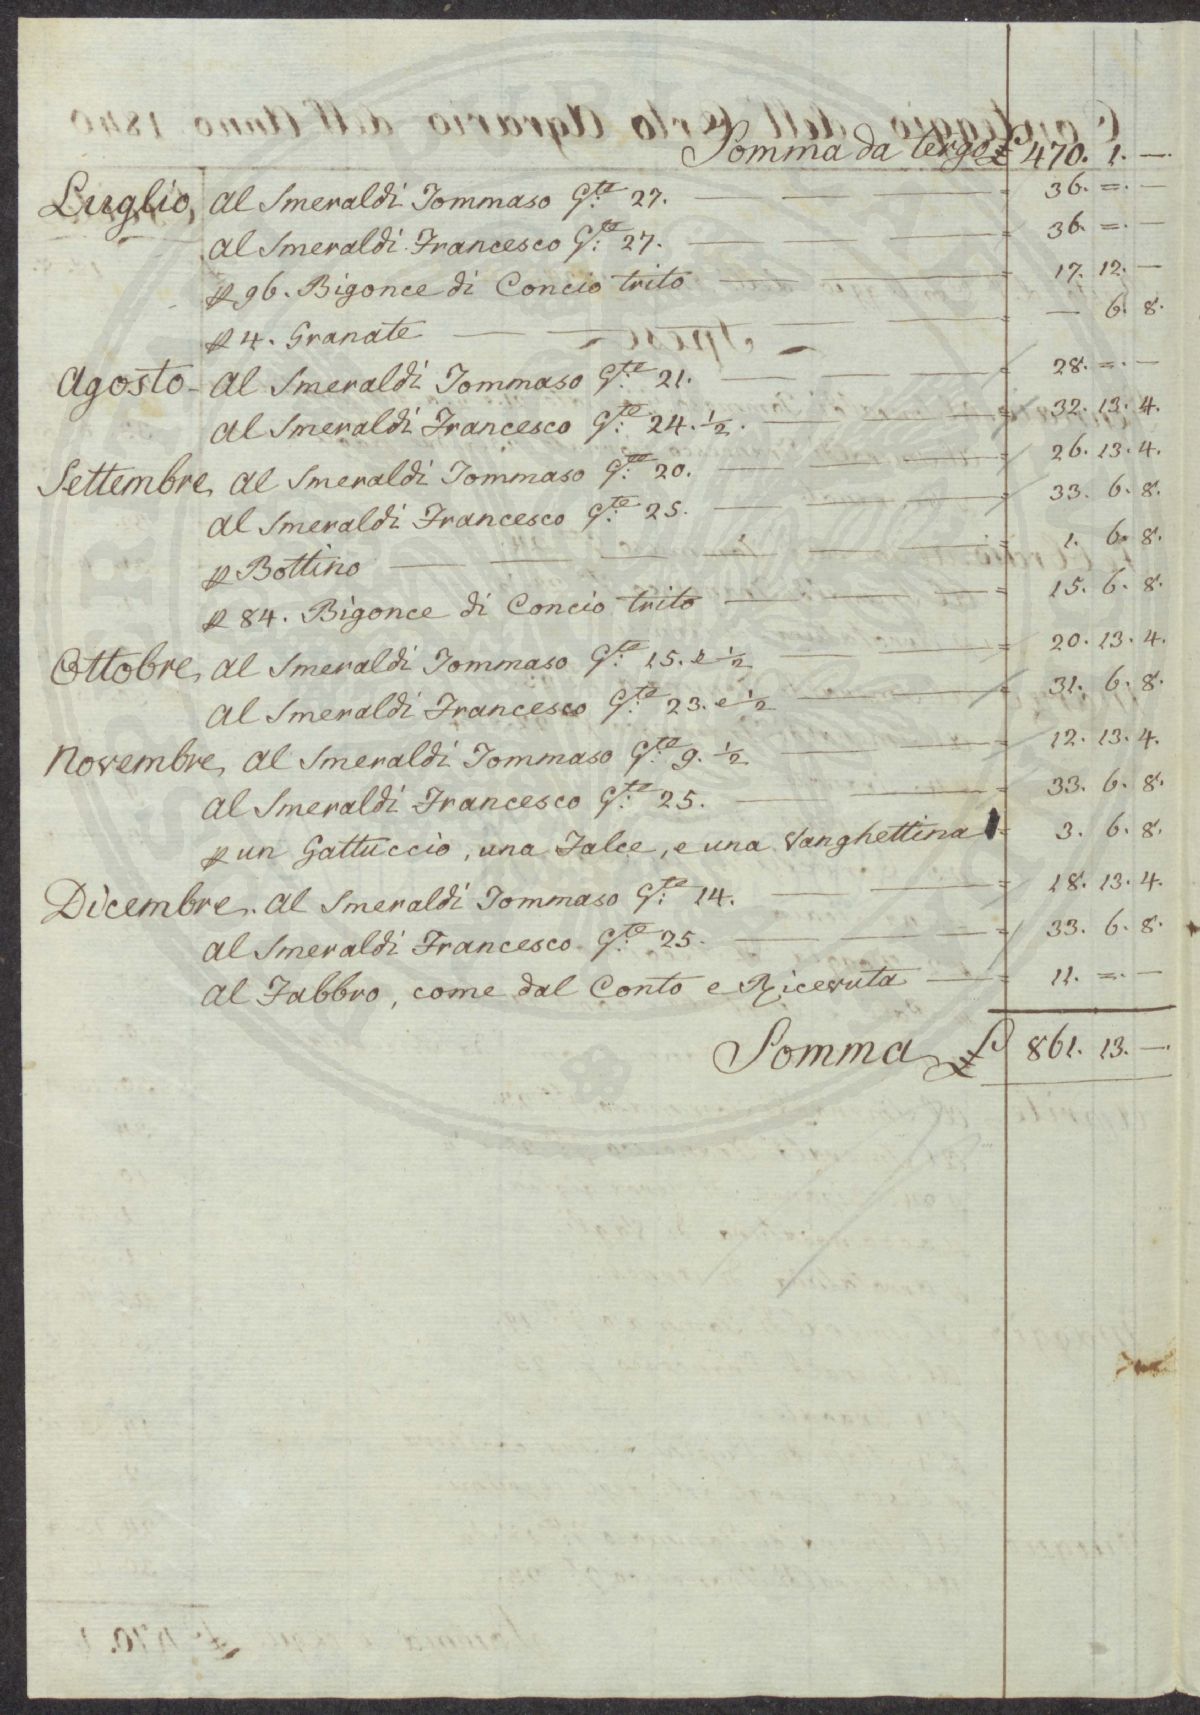 Somma da tergo £ 470. 1. —
Luglio, Al Smeraldi Tommaso G.te 27. — — — = 36. =. —
Al Smeraldi Francesco G.te 27. — — = 36. =. —
p 96. Bigonce di Concio trito — — = 17. 12. —
p 4. Granate — — — — = — 6. 8.
Agosto - Al Smeraldi Tommaso G.te 21. — — — = 28. =. —
Al Smeraldi Francesco G.te 24. ½. — — — = 32. 13. 4.
Settembre, Al Smeraldi Tommaso G.te 20. — — — = 26. 13. 4.
Al Smeraldi Francesco G.te 25. — — — = 33. 6. 8.
p Bottino — — — — — — = 1. 6. 8.
p 84. Bigonce di Concio trito — — — = 15. 6. 8.
Ottobre, Al Smeraldi Tommaso G.te 15. e ½ — — — = 20. 13. 4.
Al Smeraldi Francesco G.te 23. e ½ — — = 31. 6. 8.
Novembre, Al Smeraldi Tommaso G.te 9. ½ — — = 12. 13. 4.
Al Smeraldi Francesco G.te 25. — — = 33. 6. 8.
p un Gattuccio, una Falce, e una Vanghettina = 3. 6. 8.
Dicembre. Al Smeraldi Tommaso G.te 14. — — = 18. 13. 4.
Al Smeraldi Francesco G.te 25. — — — = 33. 6. 8.
Al Fabbro, come dal Conto e Ricevuta — = 11. =. —
Somma £ 861. 13. —